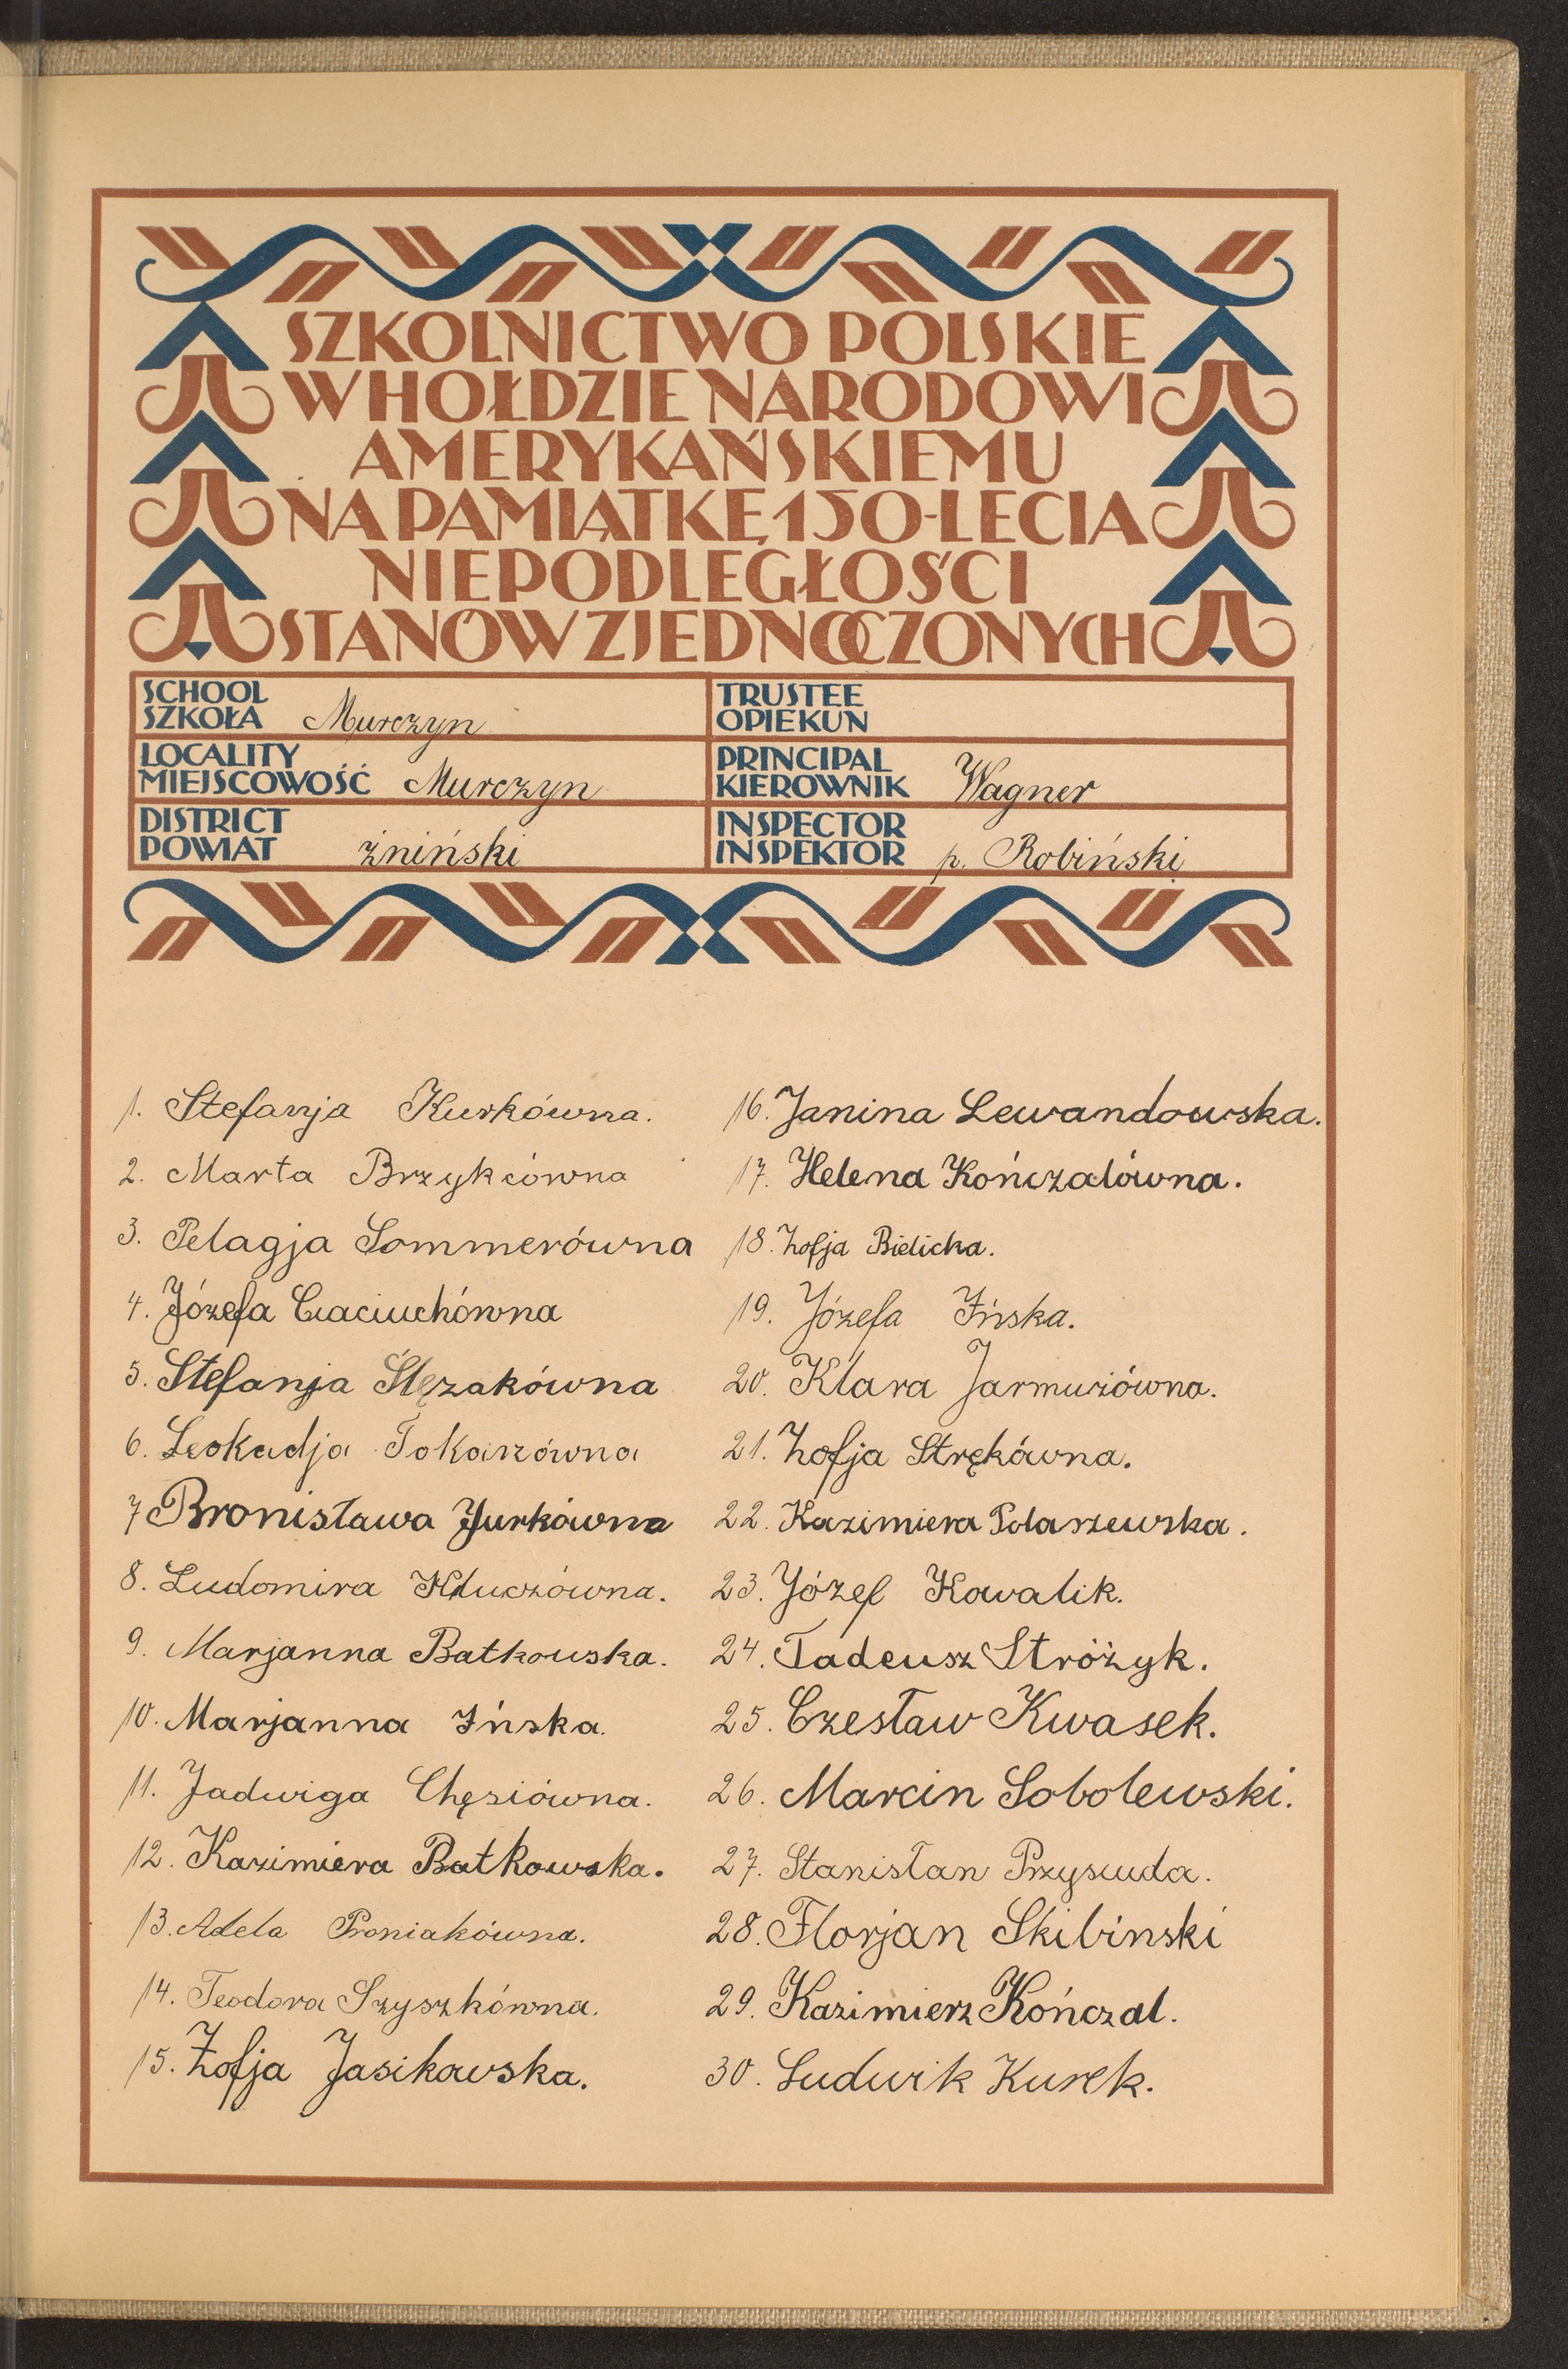 SZKOLNICTWO POLSKIE
W HOŁDZIE NARODOWI
AMERYKAŃSKIEMU
NA PAMIĄTKĘ 150-LECIA
NIEPODLEGŁOŚCI
STANÓW ZJEDNOCZONYCH
SCHOOL
SZKOŁA Murczyn
LOCALITY
MIEJSCOWOŚĆ Murczyn
DISTRICT
POWIAT żniński
TRUSTEE
OPIEKUN
PRINCIPAL
KIEROWNIK Wagner
INSPECTOR
INSPEKTOR p. Robiński
1. Stefanja Kurkówna.
2. Marta Brzykcówna
3. Pelagja Sommerówna
4. Józefa Ciaciuchówna
5. Stefanja Ślęzakówna
6. Leokadja Tokarzówna
7 Bronisława Jurkówna
8. Ludomira Kluczówna.
9. Marjanna Batkowska.
10. Marjanna Ińska.
11. Jadwiga Chęsiówna.
12. Kazimiera Batkowska.
13. Adela Proniakówna.
14. Teodora Szyszkówna.
15. Zofja Jasikowska.
16. Janina Lewandowska.
17. Helena Kończalówna.
18. Zofja Bielicka.
19. Józefa Ińska.
20. Klara Jarmużówna.
21. Zofja Strękówna.
22. Kazimiera Polaszewska.
23. Józef Kowalik.
24. Tadeusz Stróżyk.
25. Czesław Kwasek.
26. Marcin Sobolewski.
27. Stanisław Przysiuda.
28. Florjan Skibinski
29. Kazimierz Kończal.
30. Ludwik Kurek.